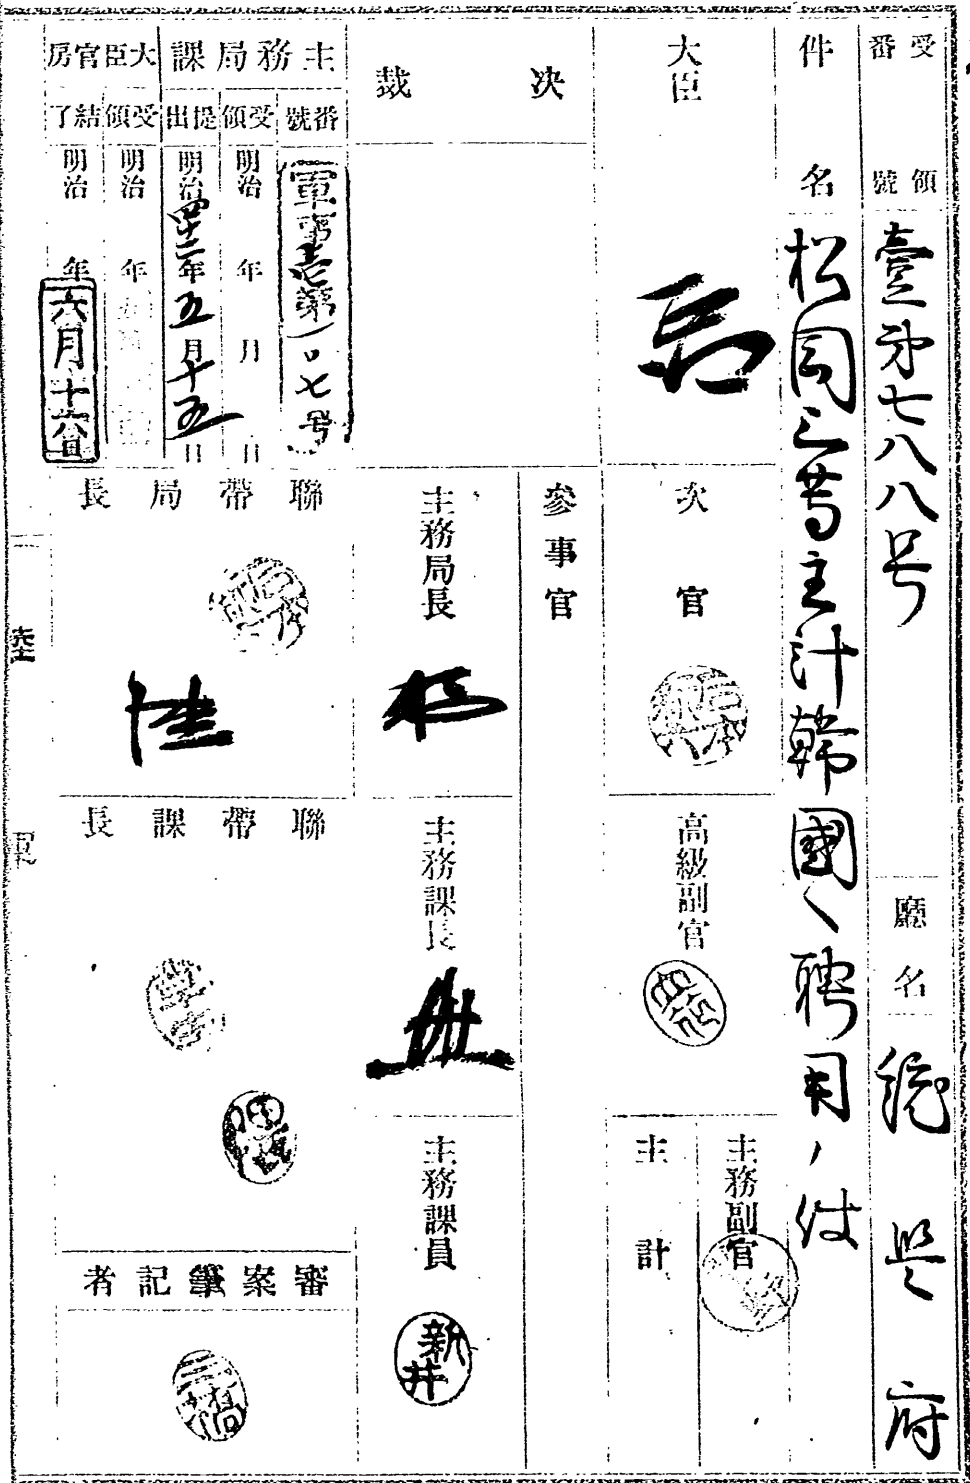 受領番號
壹第七八八号
廳名
統監府
件名
松岡三等主計韓國ヘ聘用ノ件
大臣
次官
高級副官
主務副官
主計
決裁
參事官
主務局長
主務課長
主務課員
新井
主務局課
番號
軍事壱第一〇七号
受領
明治 年 月 日
提出
明治四十二年五月十五日
大臣官房
受領
明治 年
結了
明治 年
六月十六日
聯帶局長
聯帶課長
審案筆記者
三橋
陸
軍